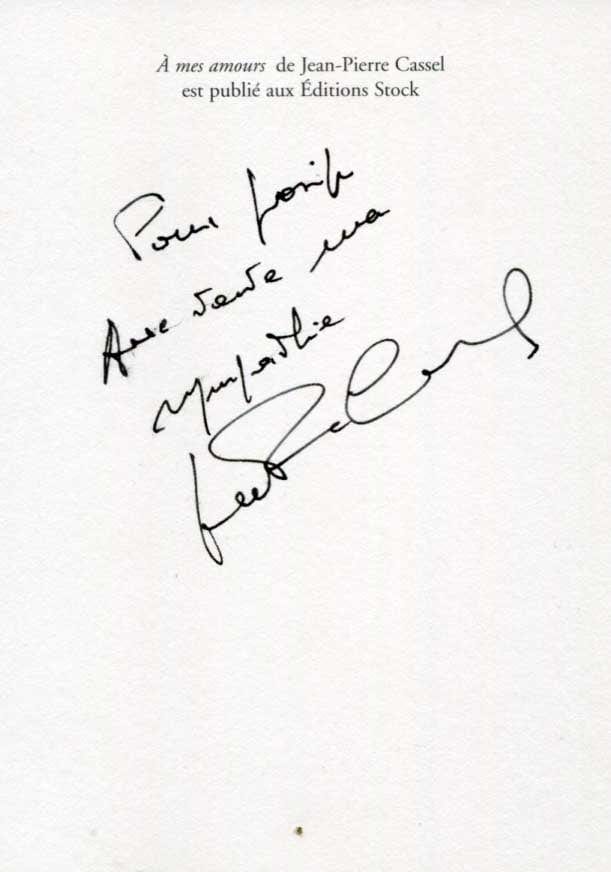 À mes amours de Jean-Pierre Cassel
est publié aux Éditions Stock
Pour
Avec toute ma
sympathie